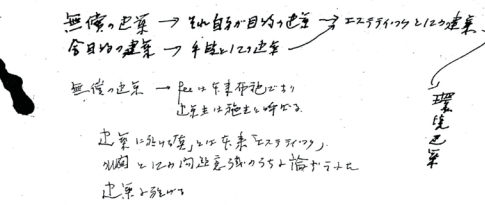 無償の建築 → それ自身が目的の建築 → エステティックとしての建築
合目的の建築 → 手段としての建築
環境建築
無償の建築 → feeは本来布施であり
建築主は施主と呼ばれる
建築に於ける「美」とは本来「エステティック」
としての問題意識のうちに論ぜられた
建築に於ける